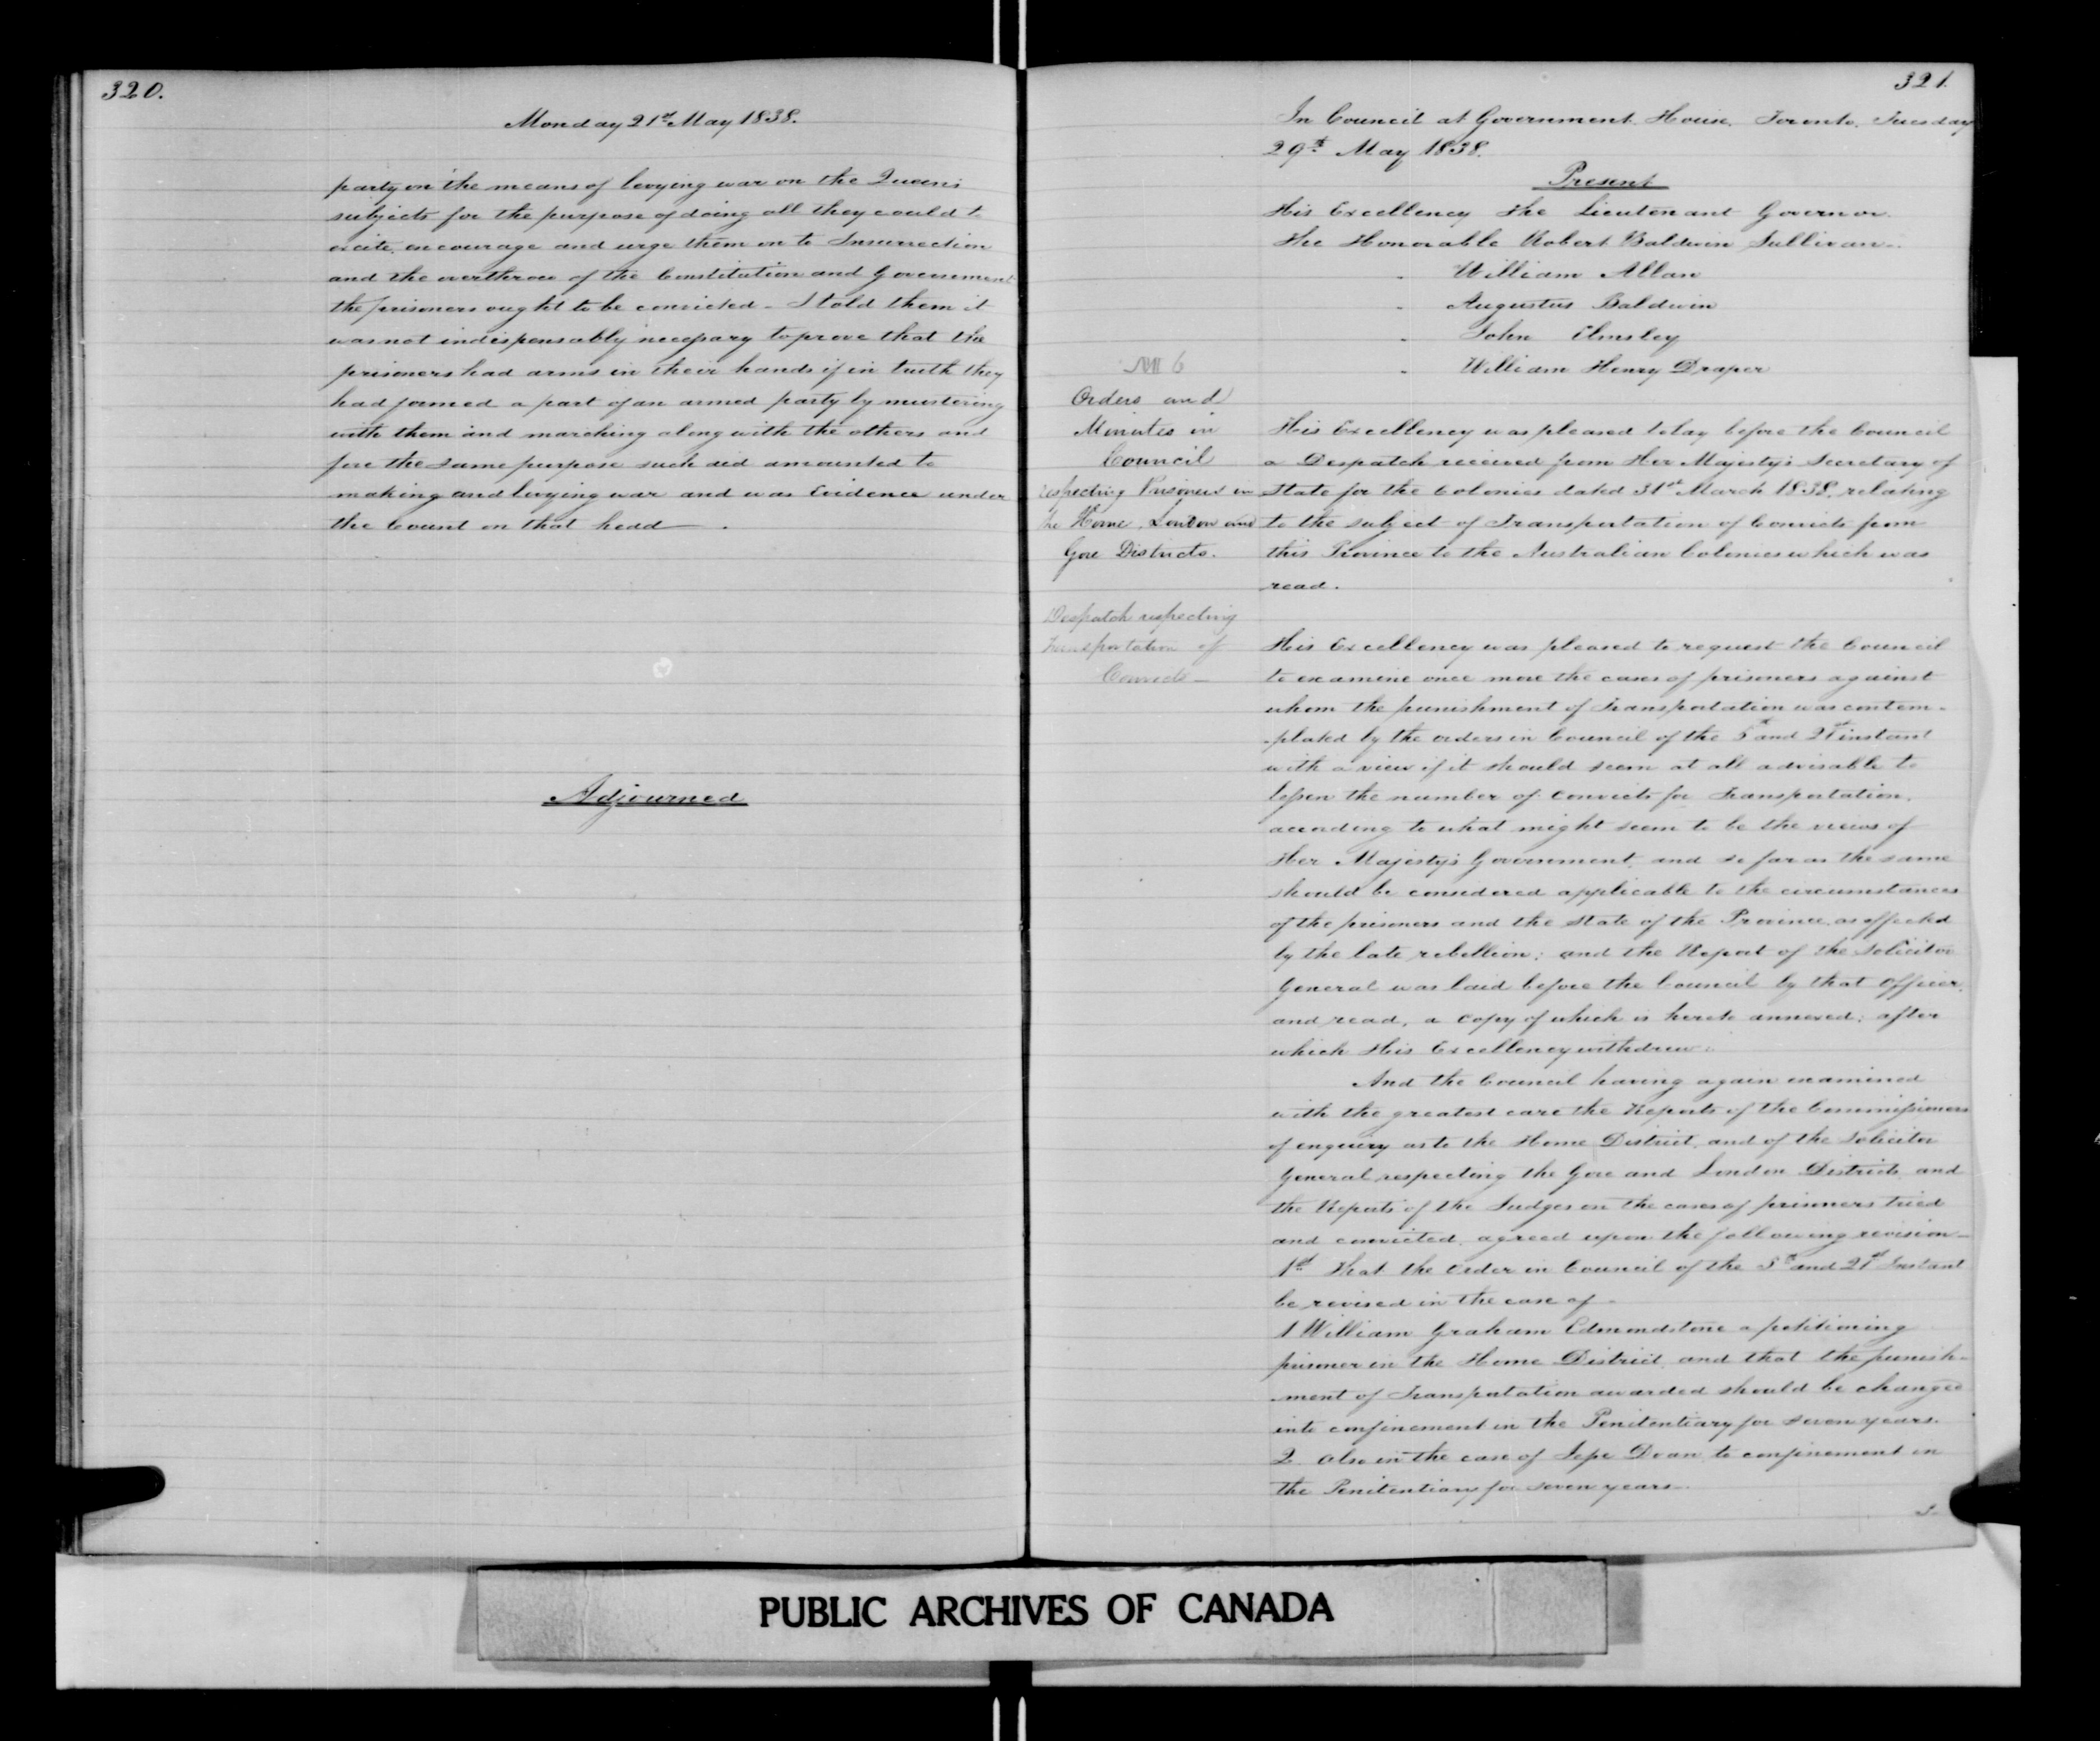 320.
Monday 21st May 1838.
party on the means of levying war on the Queen's
subjects for the purpose of doing all they could to
excite, encourage and urge them on to Insurrection
and the overthrow of the Constitution and Government
the prisoners ought to be convicted - I told them it
was not indispensably necessary to prove that the
prisoners had arms in their hands if in truth they
had formed a part of an armed party by mustering
with them and marching along with the others and
for the same purpose such aid amounted to
making and levying war and was Evidence under
the Count on that head.
Adjourned
321.
In Council at Government House, Toronto, Tuesday
29th May 1838.
Present
His Excellency The Lieutenant Governor
The Honorable Robert Baldwin Sullivan
" William Allan
" Augustus Baldwin
" John Elmsley
" William Henry Draper
6
Orders and
Minutes in
Council
respecting Prisoners in
the Home, London and
Gore Districts.
Despatch respecting
Transportation of
Convicts -
His Excellency was pleased to lay before the Council
a Despatch received from Her Majesty's Secretary of
State for the Colonies dated 31st March 1838, relating
to the subject of Transportation of Convicts from
this Province to the Australian Colonies which was
read.
His Excellency was pleased to request the Council
to examine once more the cases of prisoners against
whom the punishment of Transportation was contem-
-plated by the orders in Council of the 5th and 21st instant
with a view if it should seem at all advisable to
lessen the number of Convicts for Transportation,
according to what might seem to be the views of
Her Majesty's Government, and so far as the same
should be considered applicable to the circumstances
of the prisoners and the State of the Province, as affected
by the late rebellion; and the Report of the Solicitor
General was laid before the Council by that Officer,
and read, a Copy of which is hereto annexed; after
which His Excellency withdrew.
And the Council having again examined
with the greatest care the Reports of the Commissioners
of enquiry as to the Home District, and of the Solicitor
General respecting the Gore and London Districts, and
the Reports of the Judges on the cases of prisoners tried
and convicted, agreed upon the following revision -
1st That the Order in Council of the 5th and 21st Instant
be revised in the case of -
1 William Graham Edmondstone a petitioning
prisoner in the Home District, and that the punish-
-ment of Transportation awarded should be changed
into confinement in the Penitentiary for seven years.
2 Also in the case of Jesse Doan, to confinement in
the Penitentiary for seven years -
PUBLIC ARCHIVES OF CANADA